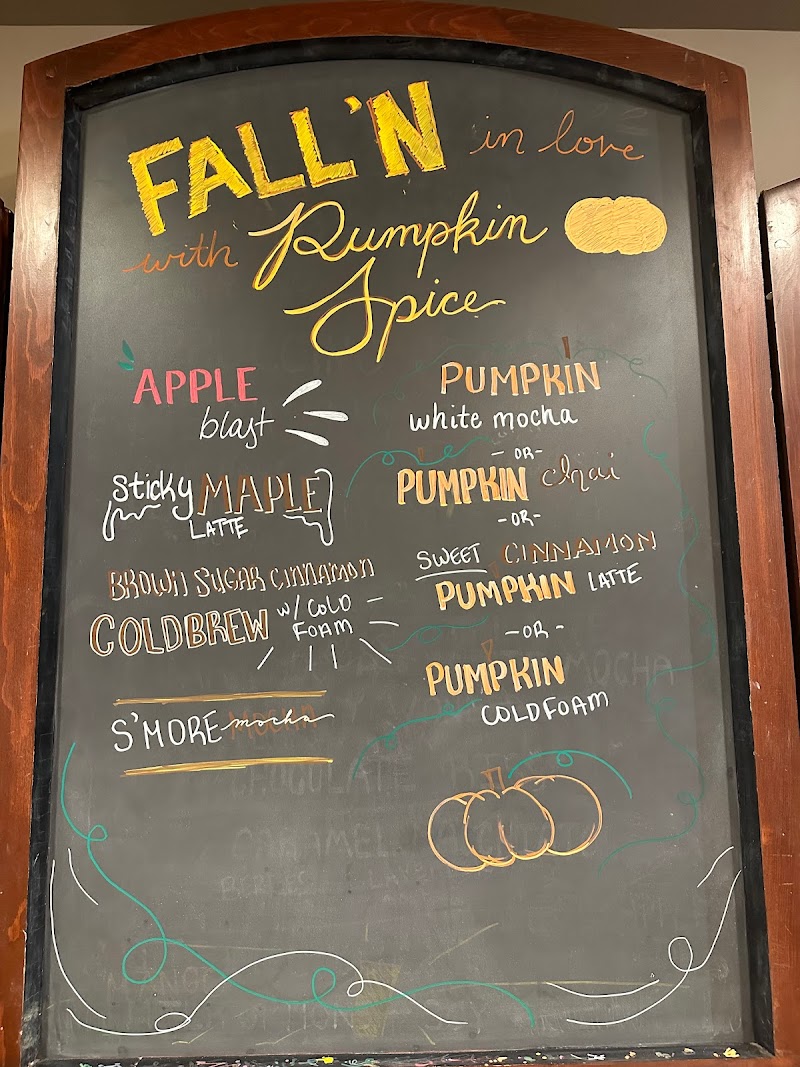 FALL'N in love
with Pumpkin
Spice
APPLE
blast
Sticky MAPLE
LATTE
BROWN SUGAR CINNAMON
COLDBREW w/ COLD
FOAM
S'MORE mocha
PUMPKIN
white mocha
-OR-
PUMPKIN chai
-OR-
SWEET CINNAMON
PUMPKIN LATTE
-OR-
PUMPKIN
COLD FOAM
MOCHA
CHOCOLATE
CARAMEL